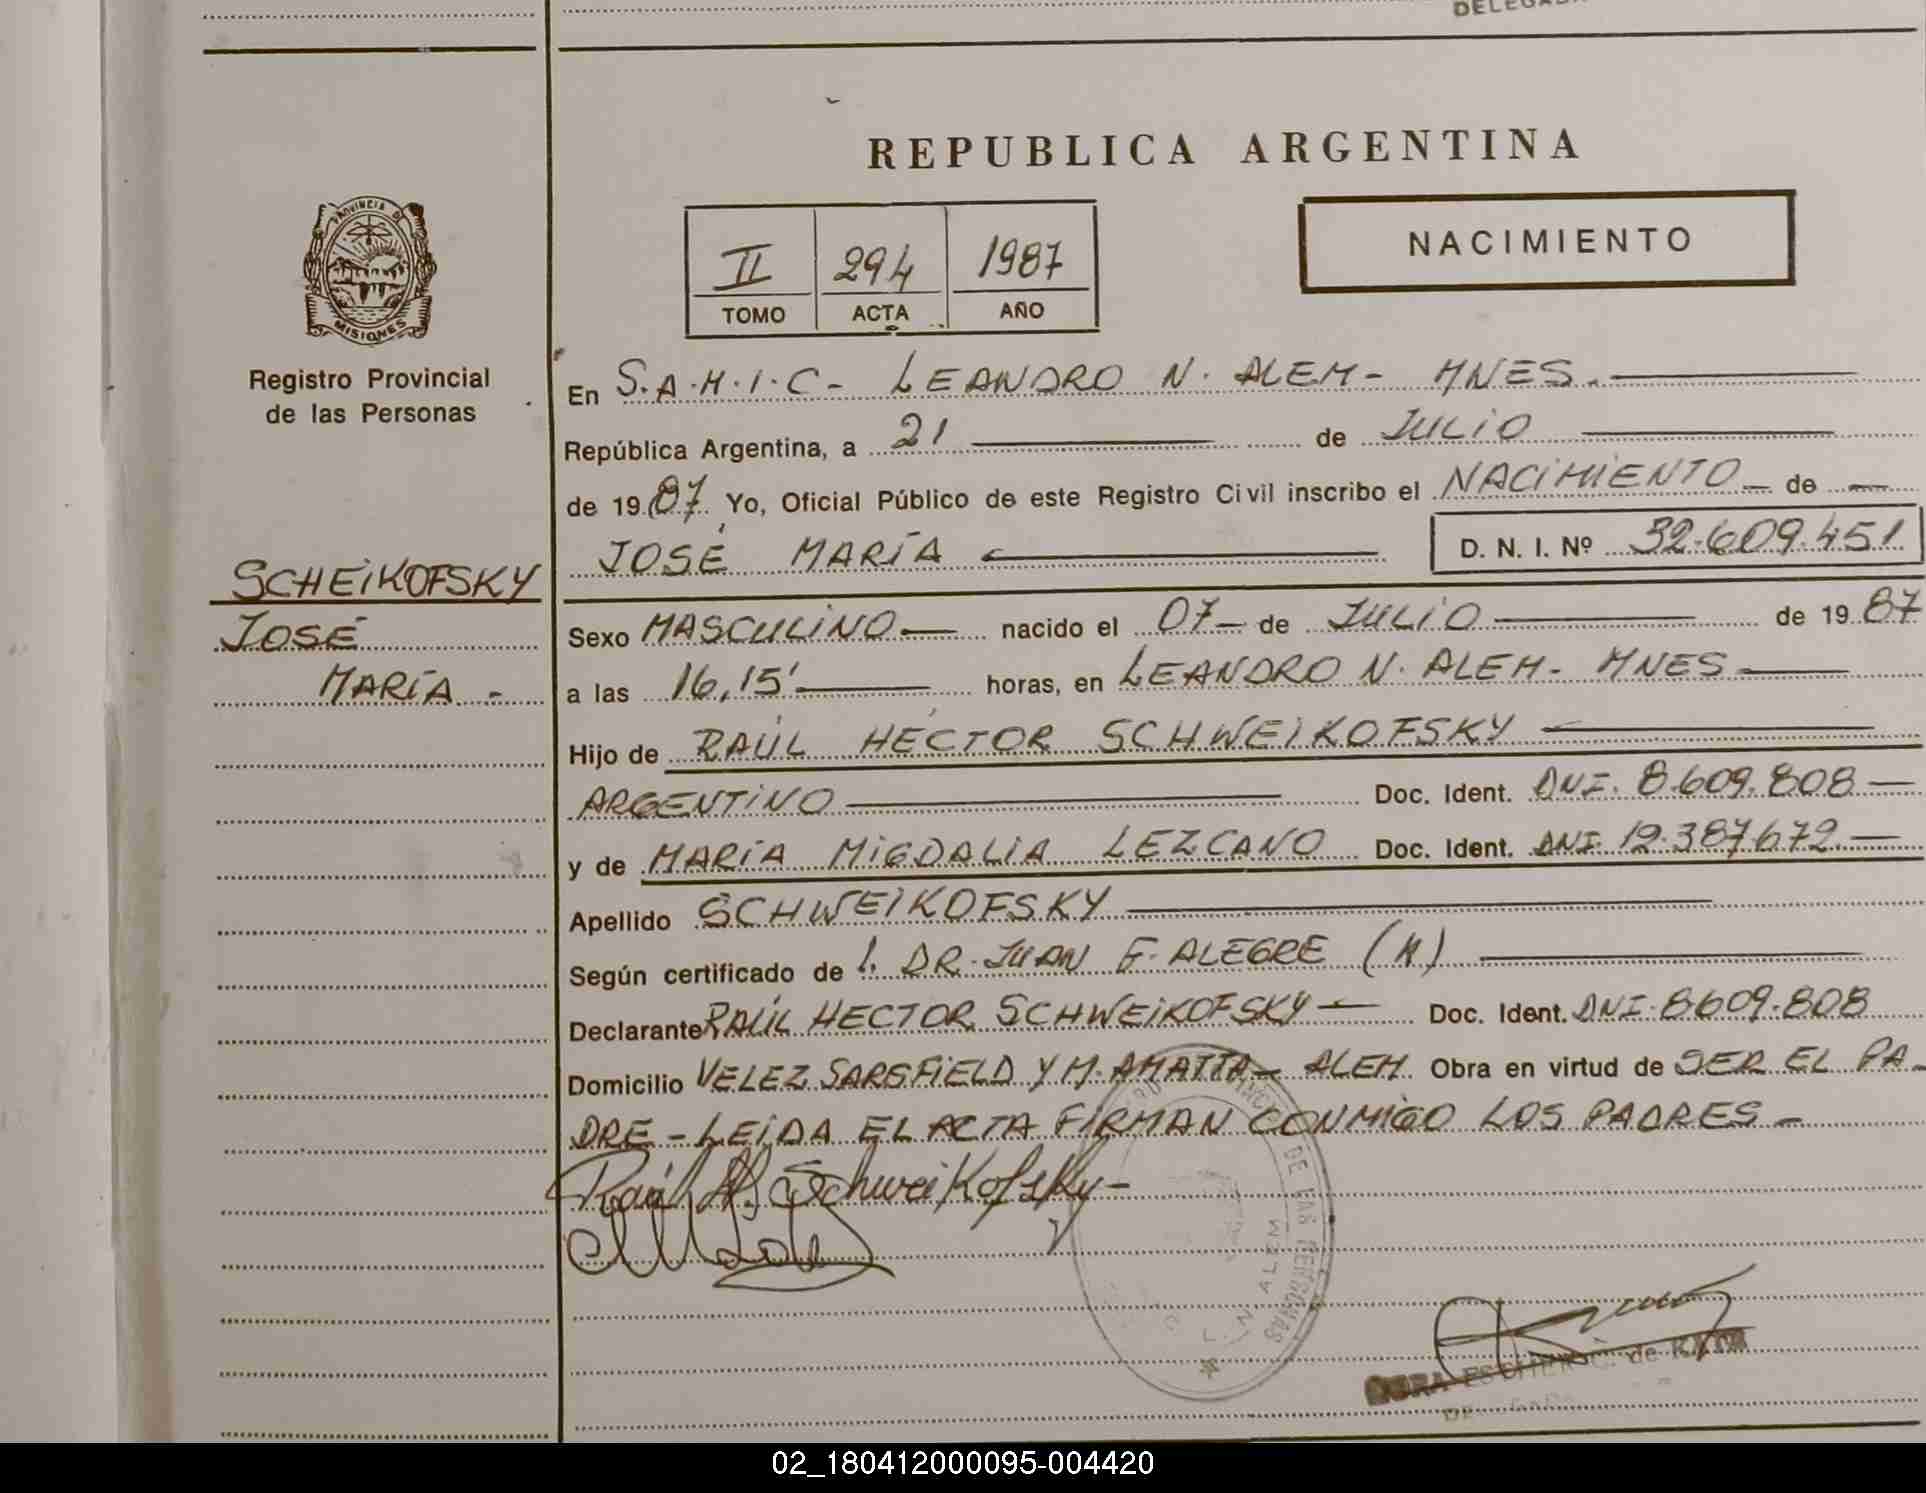 REPUBLICA ARGENTINA
NACIMIENTO
II 294 1987
TOMO ACTA AÑO
PROVINCIA DE
MISIONES
Registro Provincial
de las Personas
SCHEIKOFSKY
JOSÉ
MARÍA -
En S.A.M.I.C- LEANDRO N. ALEM- MNES.
República Argentina, a 21 de JULIO
de 1987. Yo, Oficial Público de este Registro Civil inscribo el NACIMIENTO - de -
JOSÉ MARÍA D. N. I. Nº 32.609.451
Sexo MASCULINO - nacido el 07 - de JULIO de 1987
a las 16,15' horas, en LEANDRO N. ALEM- MNES -
Hijo de RAÚL HÉCTOR SCHWEIKOFSKY
ARGENTINO Doc. Ident. DNI. 8.609.808 -
y de MARÍA MIGDALIA LEZCANO Doc. Ident. DNI. 12.387.672. -
Apellido SCHWEIKOFSKY
Según certificado de DR. JUAN F. ALEGRE (M)
Declarante RAÚL HECTOR SCHWEIKOFSKY - Doc. Ident. DNI. 8609.808
Domicilio VELEZ SARSFIELD Y M. AMATTA - ALEM Obra en virtud de SER EL PA-
DRE - LEÍDA EL ACTA FIRMAN CONMIGO LOS PADRES -
Raúl H. Schweikofsky -
DE LAS PERSONAS
L. N. ALEM
de KATH
02_180412000095-004420